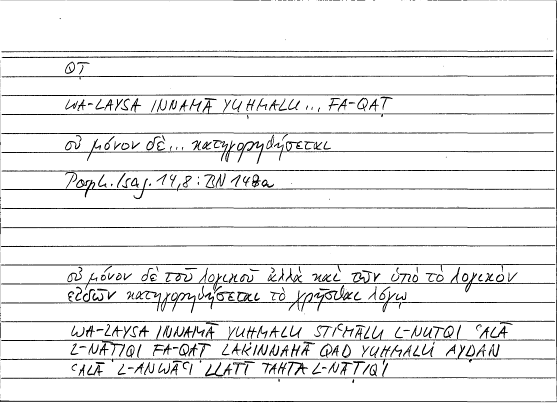 QṬ
WA-LAYSA INNAMĀ YUḤMALU... FA-QAṬ
οὐ μόνον δὲ... κατηγορηθήσεται
Porph. Isag. 14,8 : BN 148a
οὐ μόνον δὲ τοῦ λογικοῦ ἀλλὰ καὶ τῶν ὑπὸ τὸ λογικὸν
εἰδῶν κατηγορηθήσεται τὸ χρῆσθαι λόγῳ
WA-LAYSA INNAMĀ YUḤMALU STIʿMĀLU L-NUṬQI ʿALĀ
L-NĀṬIQI FA-QAṬ LAKINNAHĀ QAD YUḤMALU AYḌAN
ʿALĀ L-ANWĀʿI LLATĪ TAḤTA L-NĀṬIQI